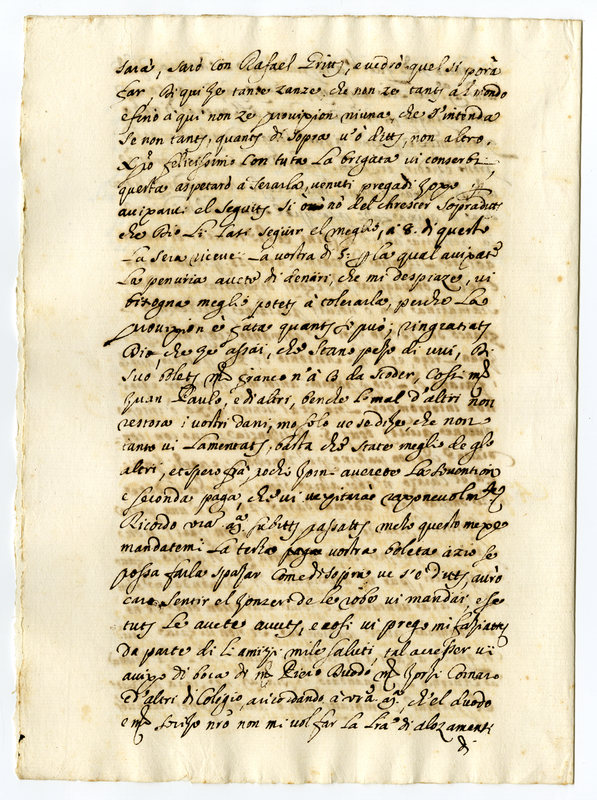 sarà, sarò con Rafael Gritti, e vedrò quel si porà
far Di qui ze tante zanze, che non ze tanti al Mondo
e fino à qui non ze provision niuna, che s'intenda
se non tanti, quanti di sopra v'ò ditti, non altro,
felicissimo con tuta La brigata vi conservi
questa aspetarò à serarla, venuti pregadi zoxe
avisarvi el seguito, si nò del chrescer sopraditto
che Dio Li Lassi seguir el meglio, à 8. di questo
La sera riceve La vostra di 5: p la qual avisate
La penuria avete di denari, che mi despiaze, vi
bisogna meglio potete à tolerarla, perche La
provision è fata quanto se può; ringratiate
Dio, che ze assai, che stano pezo di vui, Di
suò boleti m. Franco n'à 13 da Scoder, Cossi m.
Zuan Paulo, e di altri, benche lo mal d'altri non
restora i vostri dani, mo solo ve so dire, che non
tanto vi Lamentate, basta che state meglio de gli
altri, et spero frà pochi zorni averete La
e seconda paga, che vi
Ricordo vra subito passato mezo questo mexe
mandatemi La terza vostra boleta azio se
possa farla spazar Come di sopra ve s'è ditto, averò
caro sentir el zonzer de le robe vi mandai, e se
tute Le avete avute, e cosi vi prego mi
da parte di Li amizi mile saluti, tal
aviso di boca di m. Piero Duodo, m. Zorzi Cornaro
e d'altri di Colegio, aricordando à vra ch'el duodo
e m. nro non mi vol far La Lra di alozamenti
di